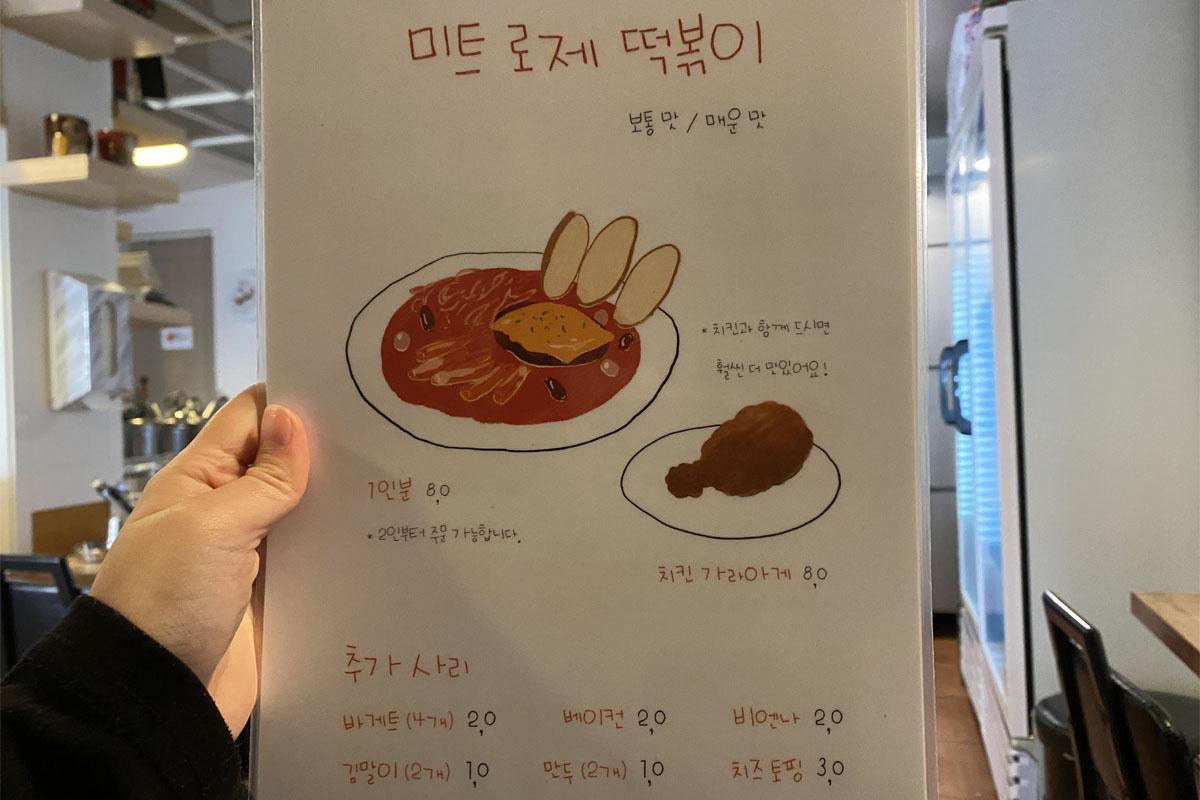 미트 로제 떡볶이
보통 맛 / 매운 맛
* 치킨과 함께 드시면
훨씬 더 맛있어요!
1인분 8,0
* 2인부터 주문 가능합니다.
치킨 가라아게 8,0
추가 사리
바게트 (4개) 2,0 베이컨 2,0 비엔나 2,0
김말이 (2개) 1,0 만두 (2개) 1,0 치즈 토핑 3,0